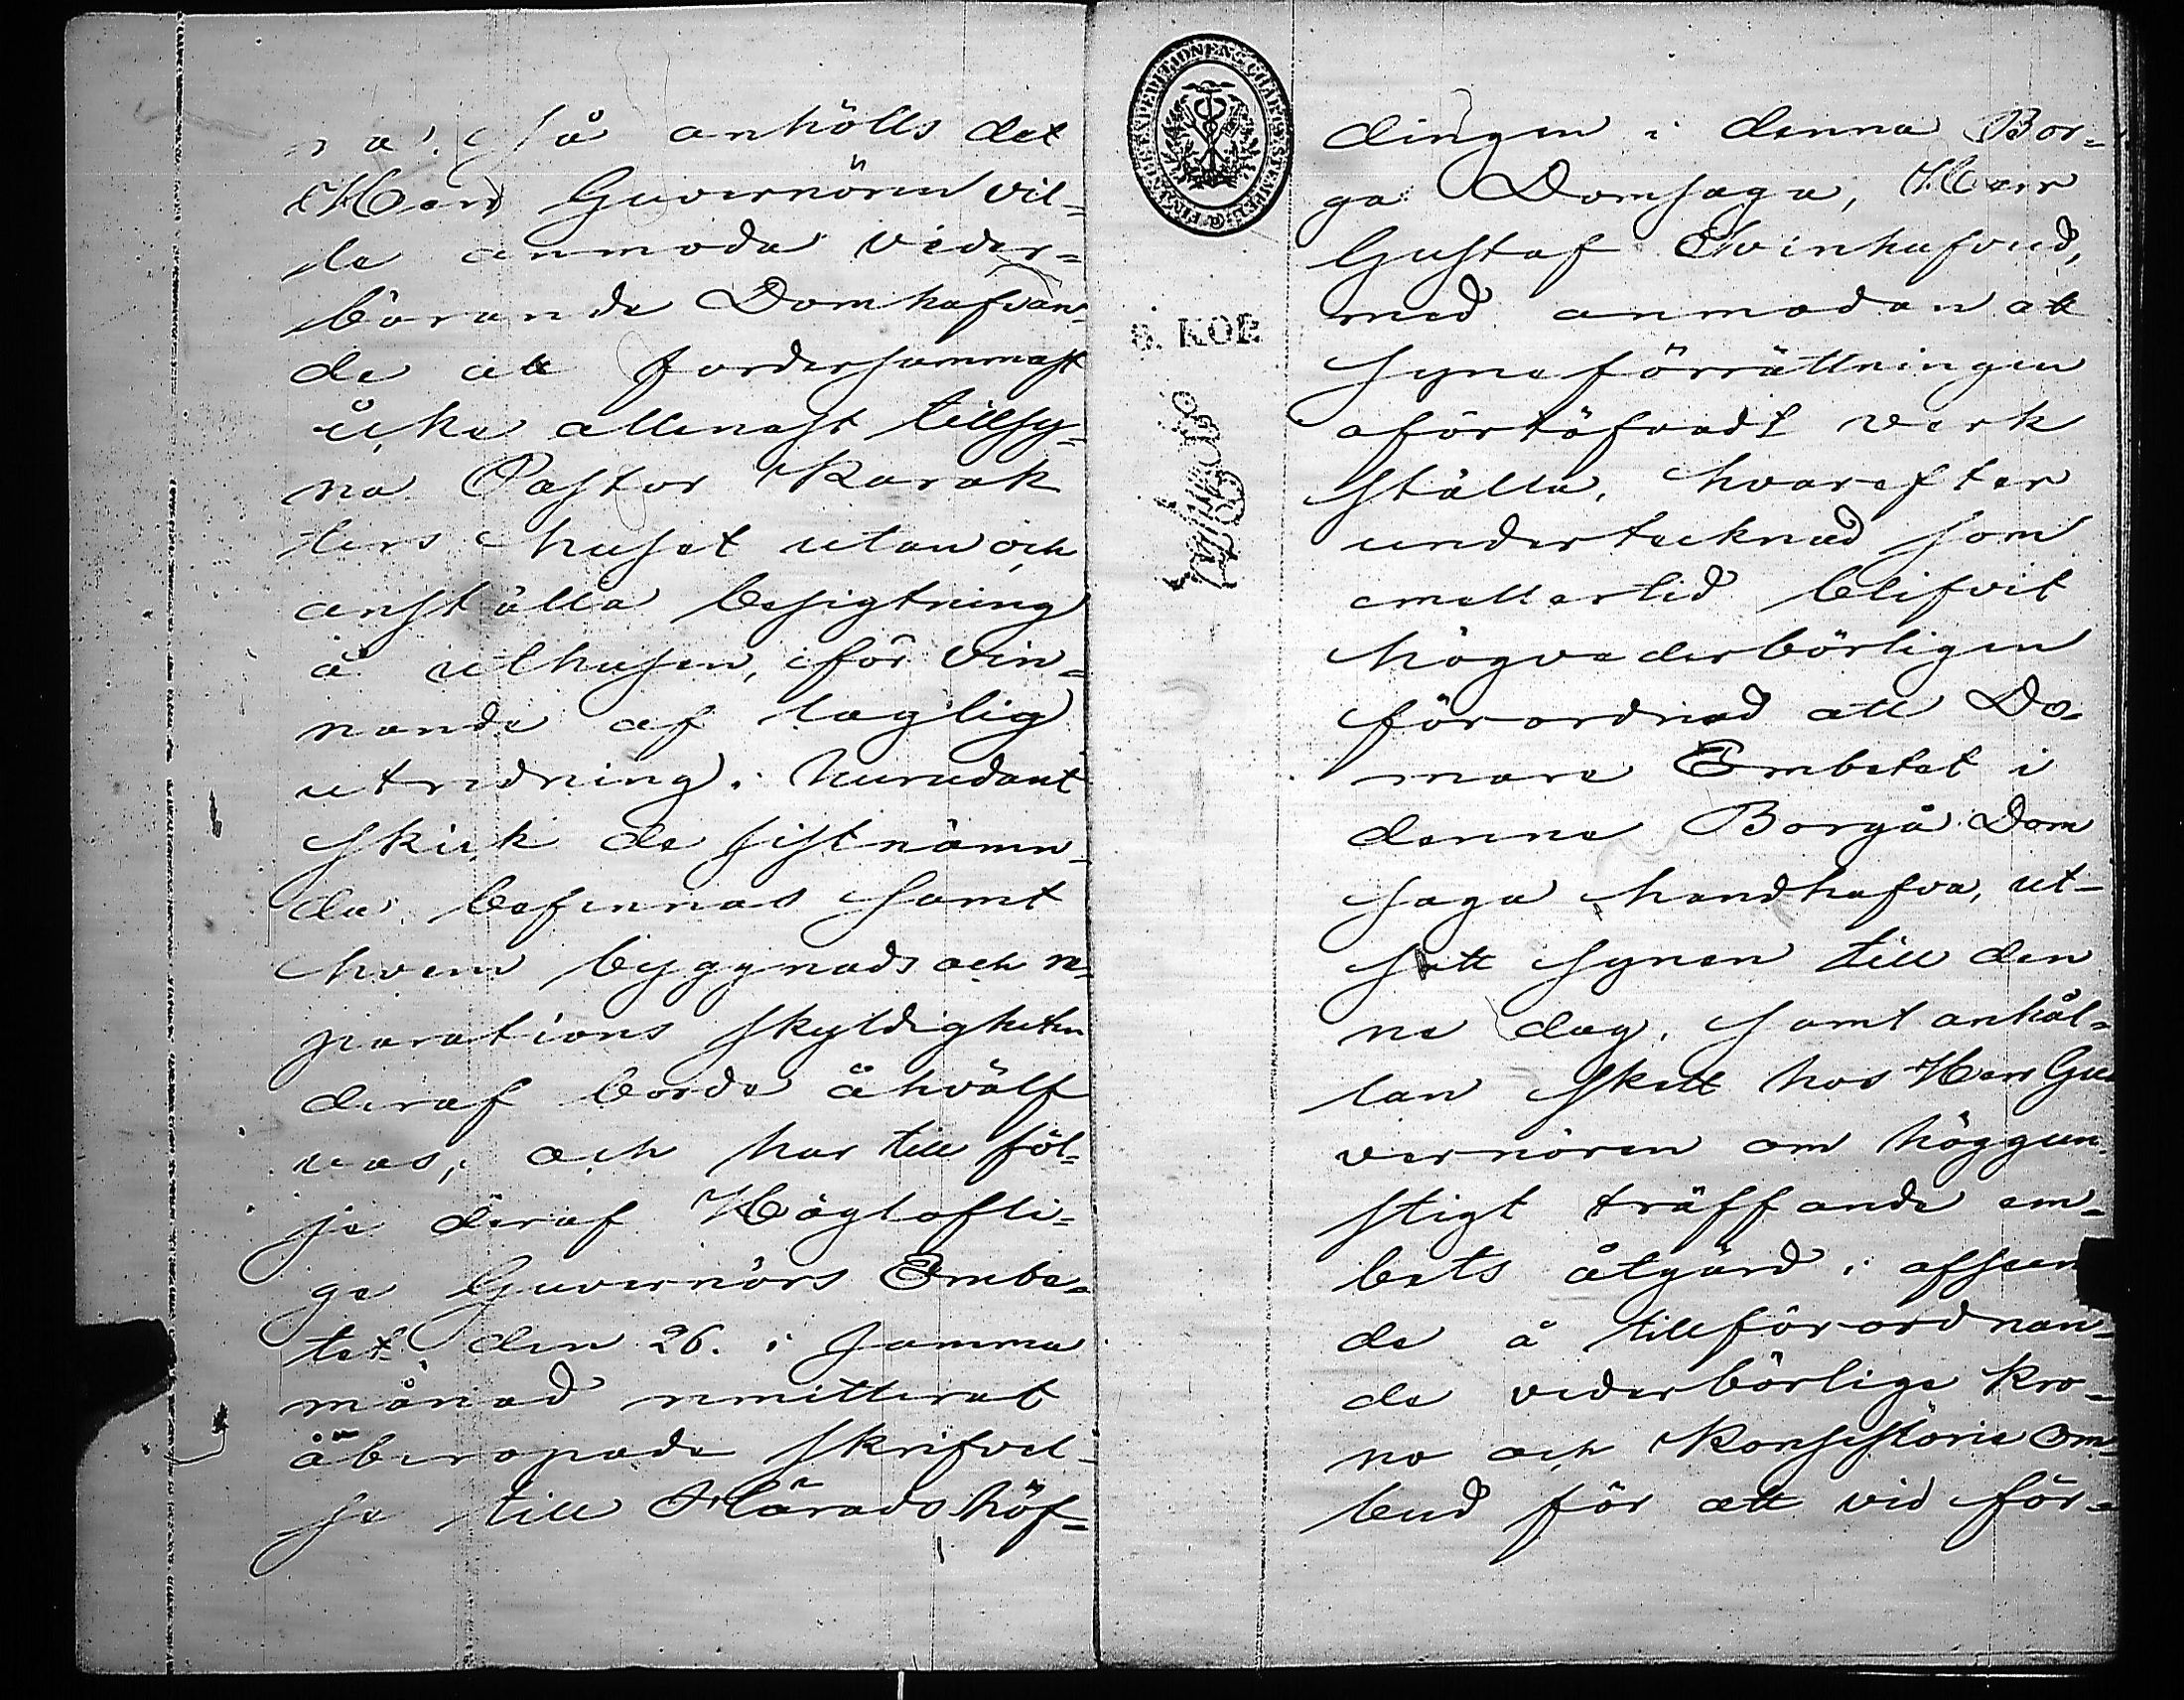 na. Så anhölls det
Herr Guvernören vil-
le anmoda veder-
börande Domhafvan-
de att fordersammast
icke allenast tillsy-
na Pastor Karak
ters huset utan och
anställa besigtning
å uthusen, för vin-
nande af laglig
utredning. hurudant
skick de sistnämn-
da befinnas samt
hvem byggnads och re-
parations skyldigheten
deraf borde åhvälf
vas; och har till föl-
je deraf Höglofli-
ga Guvernörs Embe-
tet den 26. i samma
månad remitterat
åberopade skrifvel-
se till Häradshöf-
FINANSEXPEDITIONENS CHARTÆ STEMPEL
8. KOP.
dingen i denna Bor-
gå Domsaga, Herr
Gustaf Svinhufvud,
med anmodan att
syneförrättningen
oförtöfvadt verk
ställa. hvarefter
undertecknad som
emellertid blifvit
högvederbörligen
förordnad att Do-
mare Embetet i
denna Borgå Dom
saga handhafva, ut-
satt synen till den
na dag. samt anhål-
lan skett hos Herr Gu-
vernören om höggun-
stigt träffande em-
bets åtgärd i afseen
de å tillförordnan-
de vederbörlige Kro-
no och Konsistorie Om-
bud för att vid för-